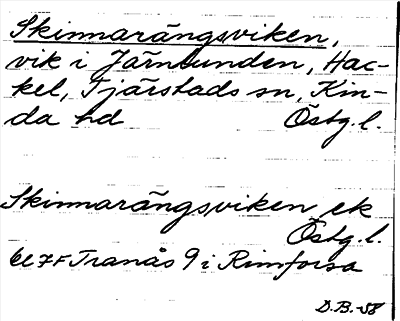 Skinnarängsviken,
vik i Järnlunden, Hac-
kel, Tjärstads sn, Kin-
da hd Östg.l.
Skinnarängsviken ek
Östg.l.
7F Tranås 9 i Rimforsa
D.B.-58